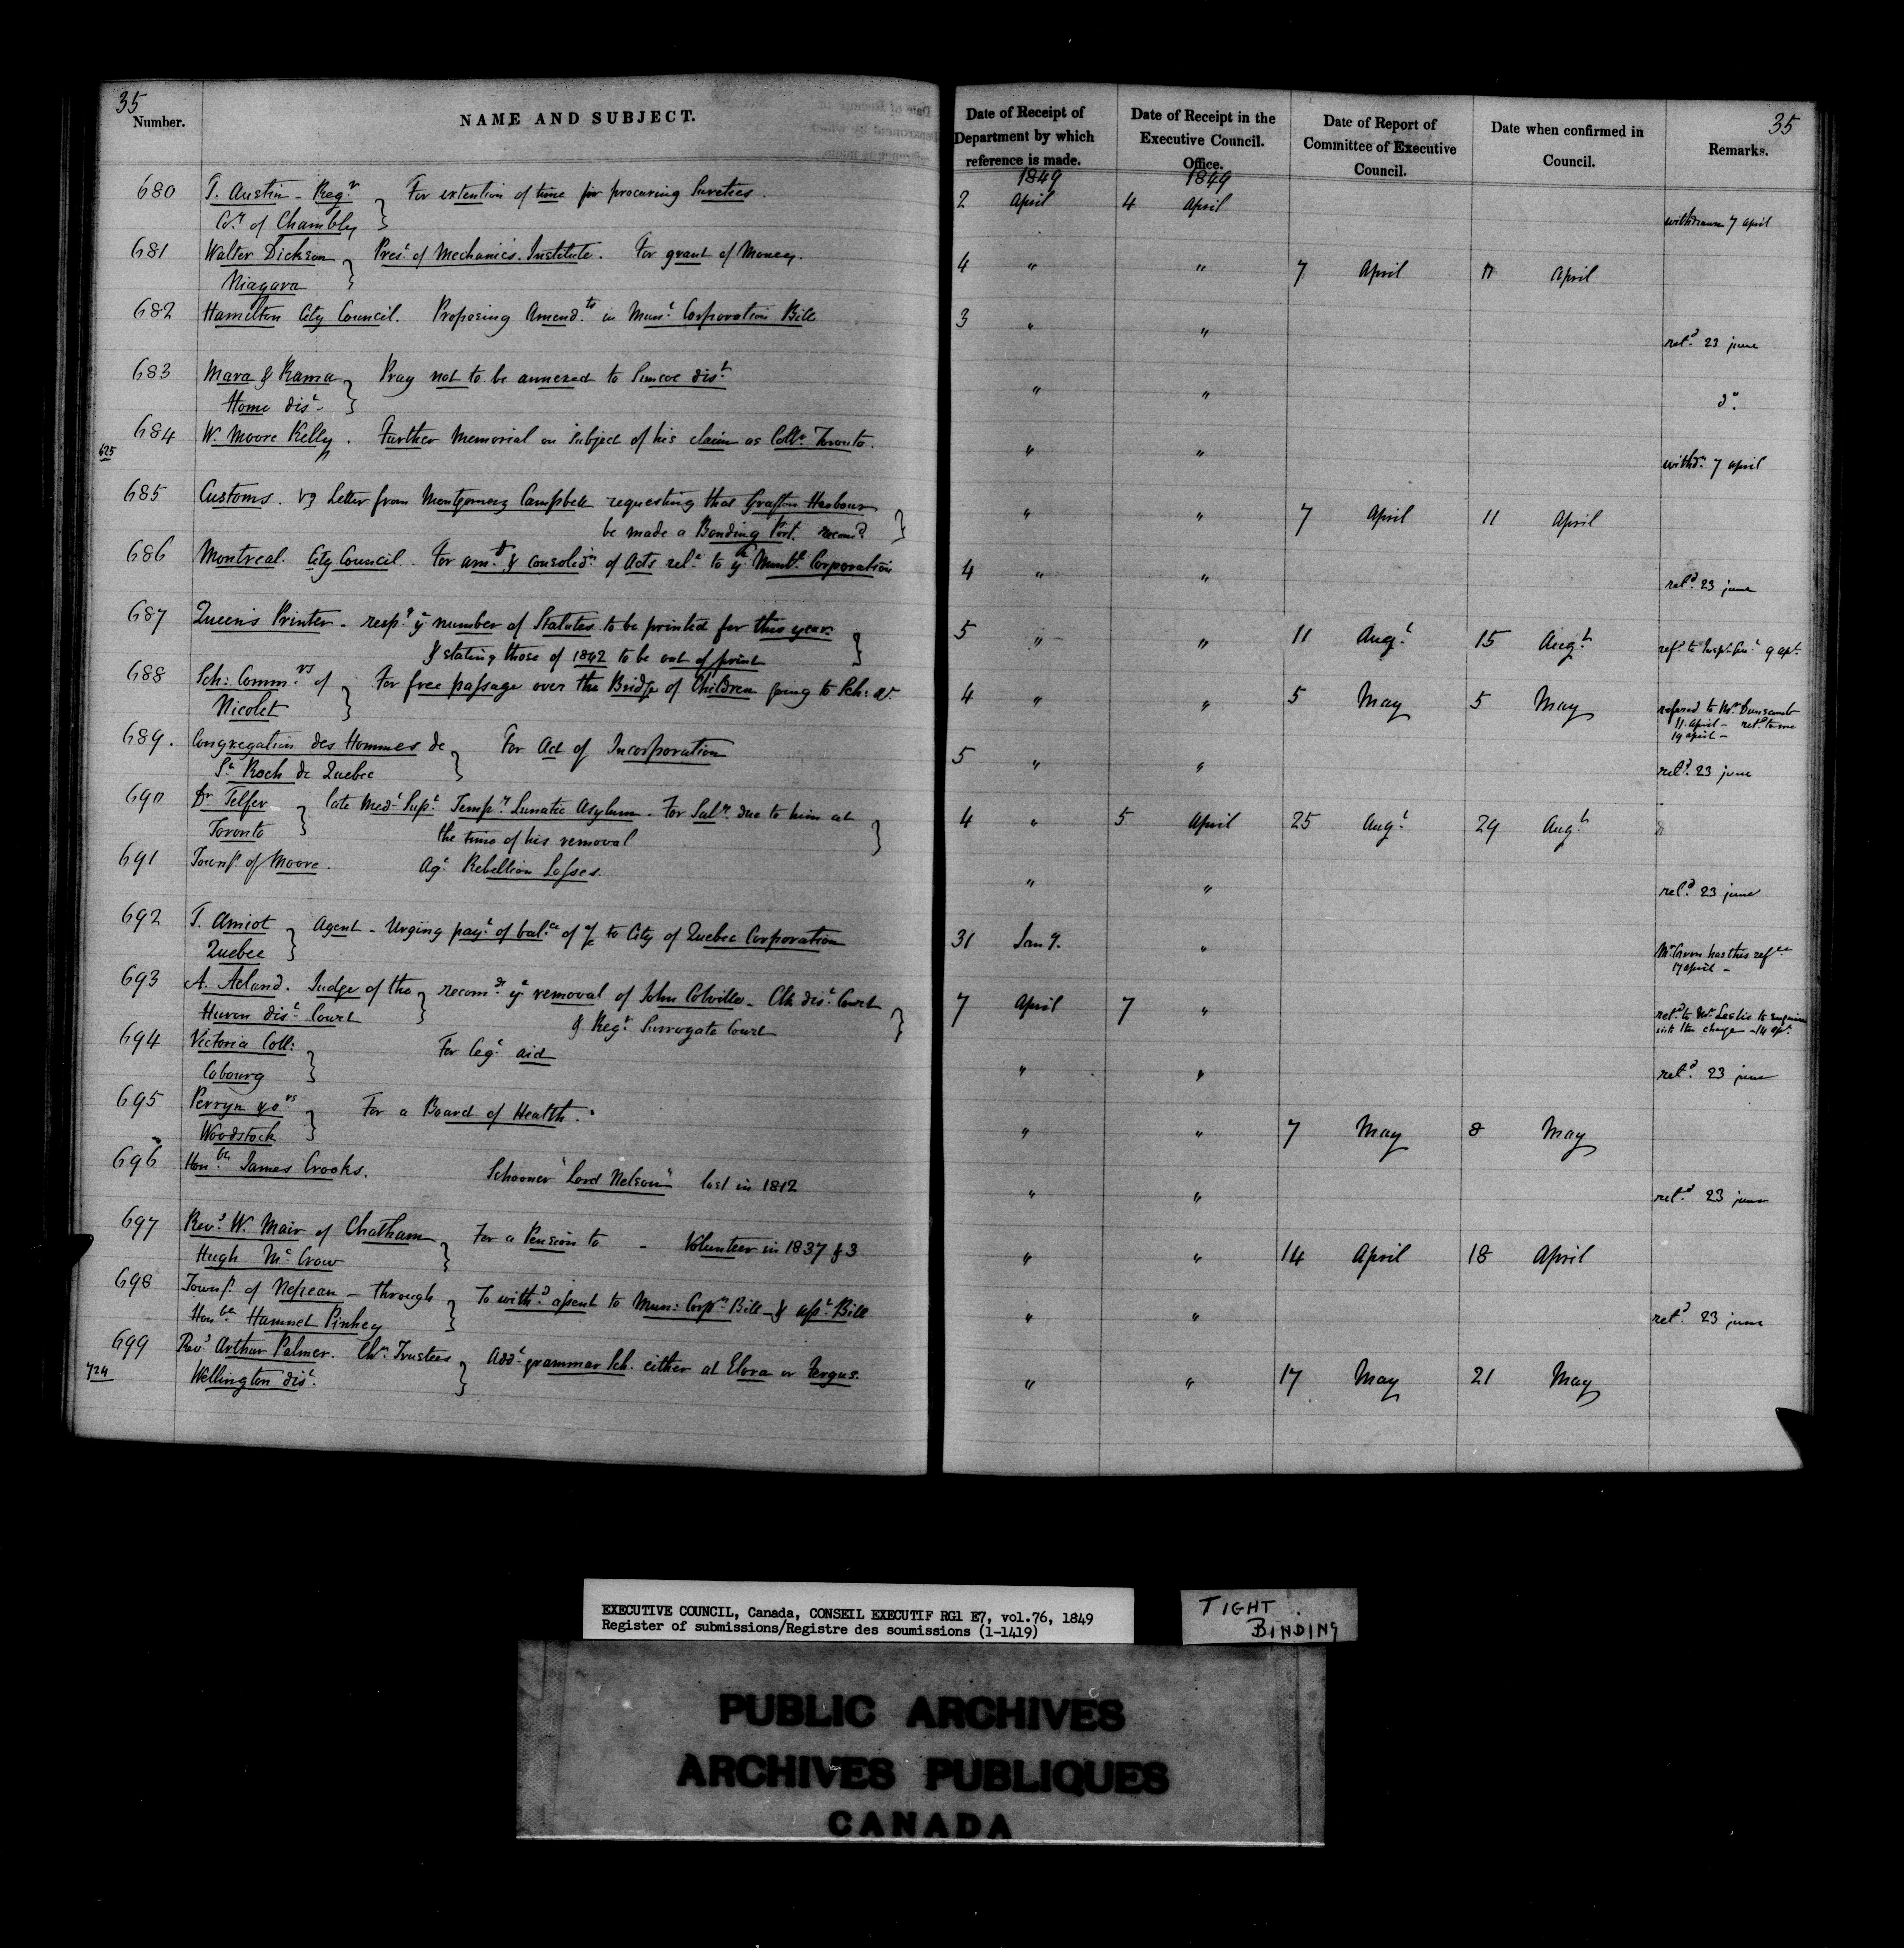 35
Number.
NAME AND SUBJECT.
Date of Receipt of Department by which reference is made.
Date of Receipt in the Executive Council. Office.
Date of Report of Committee of Executive Council.
Date when confirmed in Council.
Remarks.
35
1849 1849
680 T. Austin - Regr For extention of time for procuring Sureties. 2 April 4 April
Coy of Chambly withdrawn 7 April
681 Walter Dickson Prest of Mechanics Institute. For grant of Money. 4 " " 7 April 11 April
Niagara
682 Hamilton City Council. Proposing Amendts in Munl Corporation Bill 3 " " retd 23 june
683 Mara & Rama Pray not to be annexed to Simcoe dist " " do.
Home dist
684 W. Moore Kelly. Further Memorial on subject of his claim as Collr Toronto. " " withdn 7 april
625
685 Customs. Letter from Montgomery Campbell requesting that Grafton Harbour " " 7 April 11 April
be made a Bonding Port.
686 Montreal. City Council. For amt & consolidn of Acts relt to ye Munl Corporation 4 " " retd 23 june
687 Queen's Printer - respg ye number of Statutes to be printed for this year 5 " " 11 Augt 15 Augt refd to Insptr Genl 9 apl
& stating those of 1842 to be out of print
688 Sch: Commrs of For free passage over the Bridge of Children going to Sch: 4 " " 5 May 5 May
Nicolet referred to Mr Dunscomb
11 april - retd to me
19 april -
689. Congregation des Hommes de For Act of Incorporation 5 " " retd 23 june
St Roch de Quebec
690 Dr Telfer late Medl Supt Tempy Lunatic Asylum. For Saly due to him at 4 " 5 April 25 Augt 29 Augt
Toronto the time of his removal
691 Townsp of Moore. Agt Rebellion Losses. " " retd 23 june
692 T. Amiot Agent - Urging payt of balce of a/c to City of Quebec Corporation 31 Jany. "
Quebec Mr has this refce
17 april -
693 A. Acland. Judge of the recomdg ye removal of John Colville - Clk dist Court 7 April 7 "
Huron dist Court & Regr Surrogate Court retd to Mr Leslie to enquire
into the charge - 14 apl
694 Victoria Coll: For Legt aid " " retd 23 june
Cobourg
695 Perryn & ors For a Board of Health. " " 7 May 8 May
Woodstock
696 Honble James Crooks. Schooner "Lord Nelson" lost in 1812 " " retd 23 june
697 Revd W. Mair of Chatham For a Pension to - Volunteer in 1837 & 3 " " 14 April 18 April
Hugh McCrow
698 Townsp of Nepean - through To withd assent to Mun: Corpn Bill - & asst Bill " " retd 23 june
Honble Hamnet Pinhey
699 Revd Arthur Palmer. Chn Trustees Addl grammar Sch. either at Elora or Fergus. " " 17 May 21 May
724 Wellington dist.
EXECUTIVE COUNCIL, Canada, CONSEIL EXECUTIF RG1 E7, vol.76, 1849
Register of submissions/Registre des soumissions (1-1419)
TIGHT
BINDING
PUBLIC ARCHIVES
ARCHIVES PUBLIQUES
CANADA